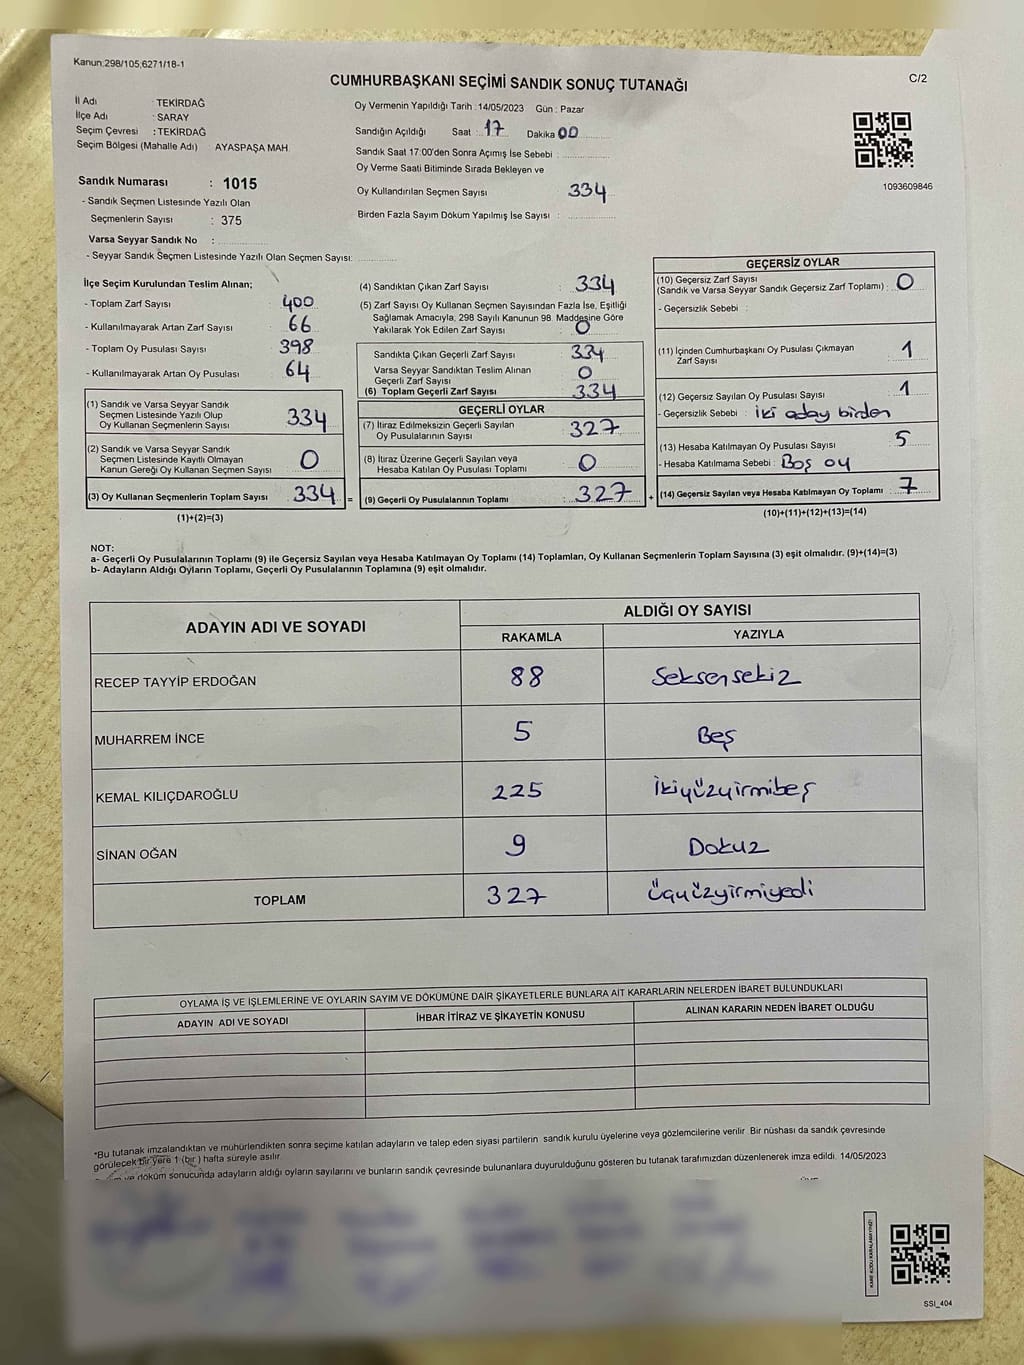 Kanun:298/105,6271/18-1
C/2
CUMHURBAŞKANI SEÇİMİ SANDIK SONUÇ TUTANAĞI
İl Adı : TEKİRDAĞ
İlçe Adı : SARAY
Seçim Çevresi : TEKİRDAĞ
Seçim Bölgesi (Mahalle Adı) AYASPAŞA MAH.
Sandık Numarası : 1015
- Sandık Seçmen Listesinde Yazılı Olan
Seçmenlerin Sayısı : 375
Varsa Seyyar Sandık No :
- Seyyar Sandık Seçmen Listesinde Yazılı Olan Seçmen Sayısı:
Oy Vermenin Yapıldığı Tarih : 14/05/2023 Gün : Pazar
Sandığın Açıldığı Saat : 17 Dakika 00
Sandık Saat 17:00'den Sonra Açımış İse Sebebi :
Oy Verme Saati Bitiminde Sırada Bekleyen ve
Oy Kullandırılan Seçmen Sayısı 334
Birden Fazla Sayım Döküm Yapılmış İse Sayısı :
1093609846
İlçe Seçim Kurulundan Teslim Alınan;
- Toplam Zarf Sayısı : 400
- Kullanılmayarak Artan Zarf Sayısı : 66
- Toplam Oy Pusulası Sayısı : 398
- Kullanılmayarak Artan Oy Pusulası : 64
(1) Sandık ve Varsa Seyyar Sandık
Seçmen Listesinde Yazılı Olup
Oy Kullanan Seçmenlerin Sayısı 334
(2) Sandık ve Varsa Seyyar Sandık
Seçmen Listesinde Kayıtlı Olmayan
Kanun Gereği Oy Kullanan Seçmen Sayısı 0
(3) Oy Kullanan Seçmenlerin Toplam Sayısı 334 =
(1)+(2)=(3)
(4) Sandıktan Çıkan Zarf Sayısı : 334
(5) Zarf Sayısı Oy Kullanan Seçmen Sayısından Fazla İse, Eşitliği
Sağlamak Amacıyla, 298 Sayılı Kanunun 98. Maddesine Göre
Yakılarak Yok Edilen Zarf Sayısı : 0
Sandıkta Çıkan Geçerli Zarf Sayısı : 334
Varsa Seyyar Sandıktan Teslim Alınan
Geçerli Zarf Sayısı : 0
(6) Toplam Geçerli Zarf Sayısı : 334
GEÇERLİ OYLAR
(7) İtiraz Edilmeksizin Geçerli Sayılan
Oy Pusulalarının Sayısı : 327
(8) İtiraz Üzerine Geçerli Sayılan veya
Hesaba Katılan Oy Pusulası Toplamı : 0
(9) Geçerli Oy Pusulalarının Toplamı : 327 +
GEÇERSİZ OYLAR
(10) Geçersiz Zarf Sayısı
(Sandık ve Varsa Seyyar Sandık Geçersiz Zarf Toplamı) : 0
- Geçersizlik Sebebi :
(11) İçinden Cumhurbaşkanı Oy Pusulası Çıkmayan
Zarf Sayısı : 1
(12) Geçersiz Sayılan Oy Pusulası Sayısı : 1
- Geçersizlik Sebebi : iki aday birden
(13) Hesaba Katılmayan Oy Pusulası Sayısı : 5
- Hesaba Katılmama Sebebi : Boş oy
(14) Geçersiz Sayılan veya Hesaba Katılmayan Oy Toplamı : 7
(10)+(11)+(12)+(13)=(14)
NOT:
a- Geçerli Oy Pusulalarının Toplamı (9) ile Geçersiz Sayılan veya Hesaba Katılmayan Oy Toplamı (14) Toplamları, Oy Kullanan Seçmenlerin Toplam Sayısına (3) eşit olmalıdır. (9)+(14)=(3)
b- Adayların Aldığı Oyların Toplamı, Geçerli Oy Pusulalarının Toplamına (9) eşit olmalıdır.
ADAYIN ADI VE SOYADI ALDIĞI OY SAYISI
RAKAMLA YAZIYLA
RECEP TAYYİP ERDOĞAN 88 Seksensekiz
MUHARREM İNCE 5 Beş
KEMAL KILIÇDAROĞLU 225 İkiyüzyirmibeş
SİNAN OĞAN 9 Dokuz
TOPLAM 327 üçyüzyirmiyedi
OYLAMA İŞ VE İŞLEMLERİNE VE OYLARIN SAYIM VE DÖKÜMÜNE DAİR ŞİKAYETLERLE BUNLARA AİT KARARLARIN NELERDEN İBARET BULUNDUKLARI
ADAYIN ADI VE SOYADI İHBAR İTİRAZ VE ŞİKAYETİN KONUSU ALINAN KARARIN NEDEN İBARET OLDUĞU
*Bu tutanak imzalandıktan ve mühürlendikten sonra seçime katılan adayların ve talep eden siyasi partilerin sandık kurulu üyelerine veya gözlemcilerine verilir. Bir nüshası da sandık çevresinde
görülecek bir yere 1 (bir ) hafta süreyle asılır.
ve döküm sonucunda adayların aldığı oyların sayılarını ve bunların sandık çevresinde bulunanlara duyurulduğunu gösteren bu tutanak tarafımızdan düzenlenerek imza edildi. 14/05/2023
KARE KODU KARALAMAYINIZ!
SSI_404